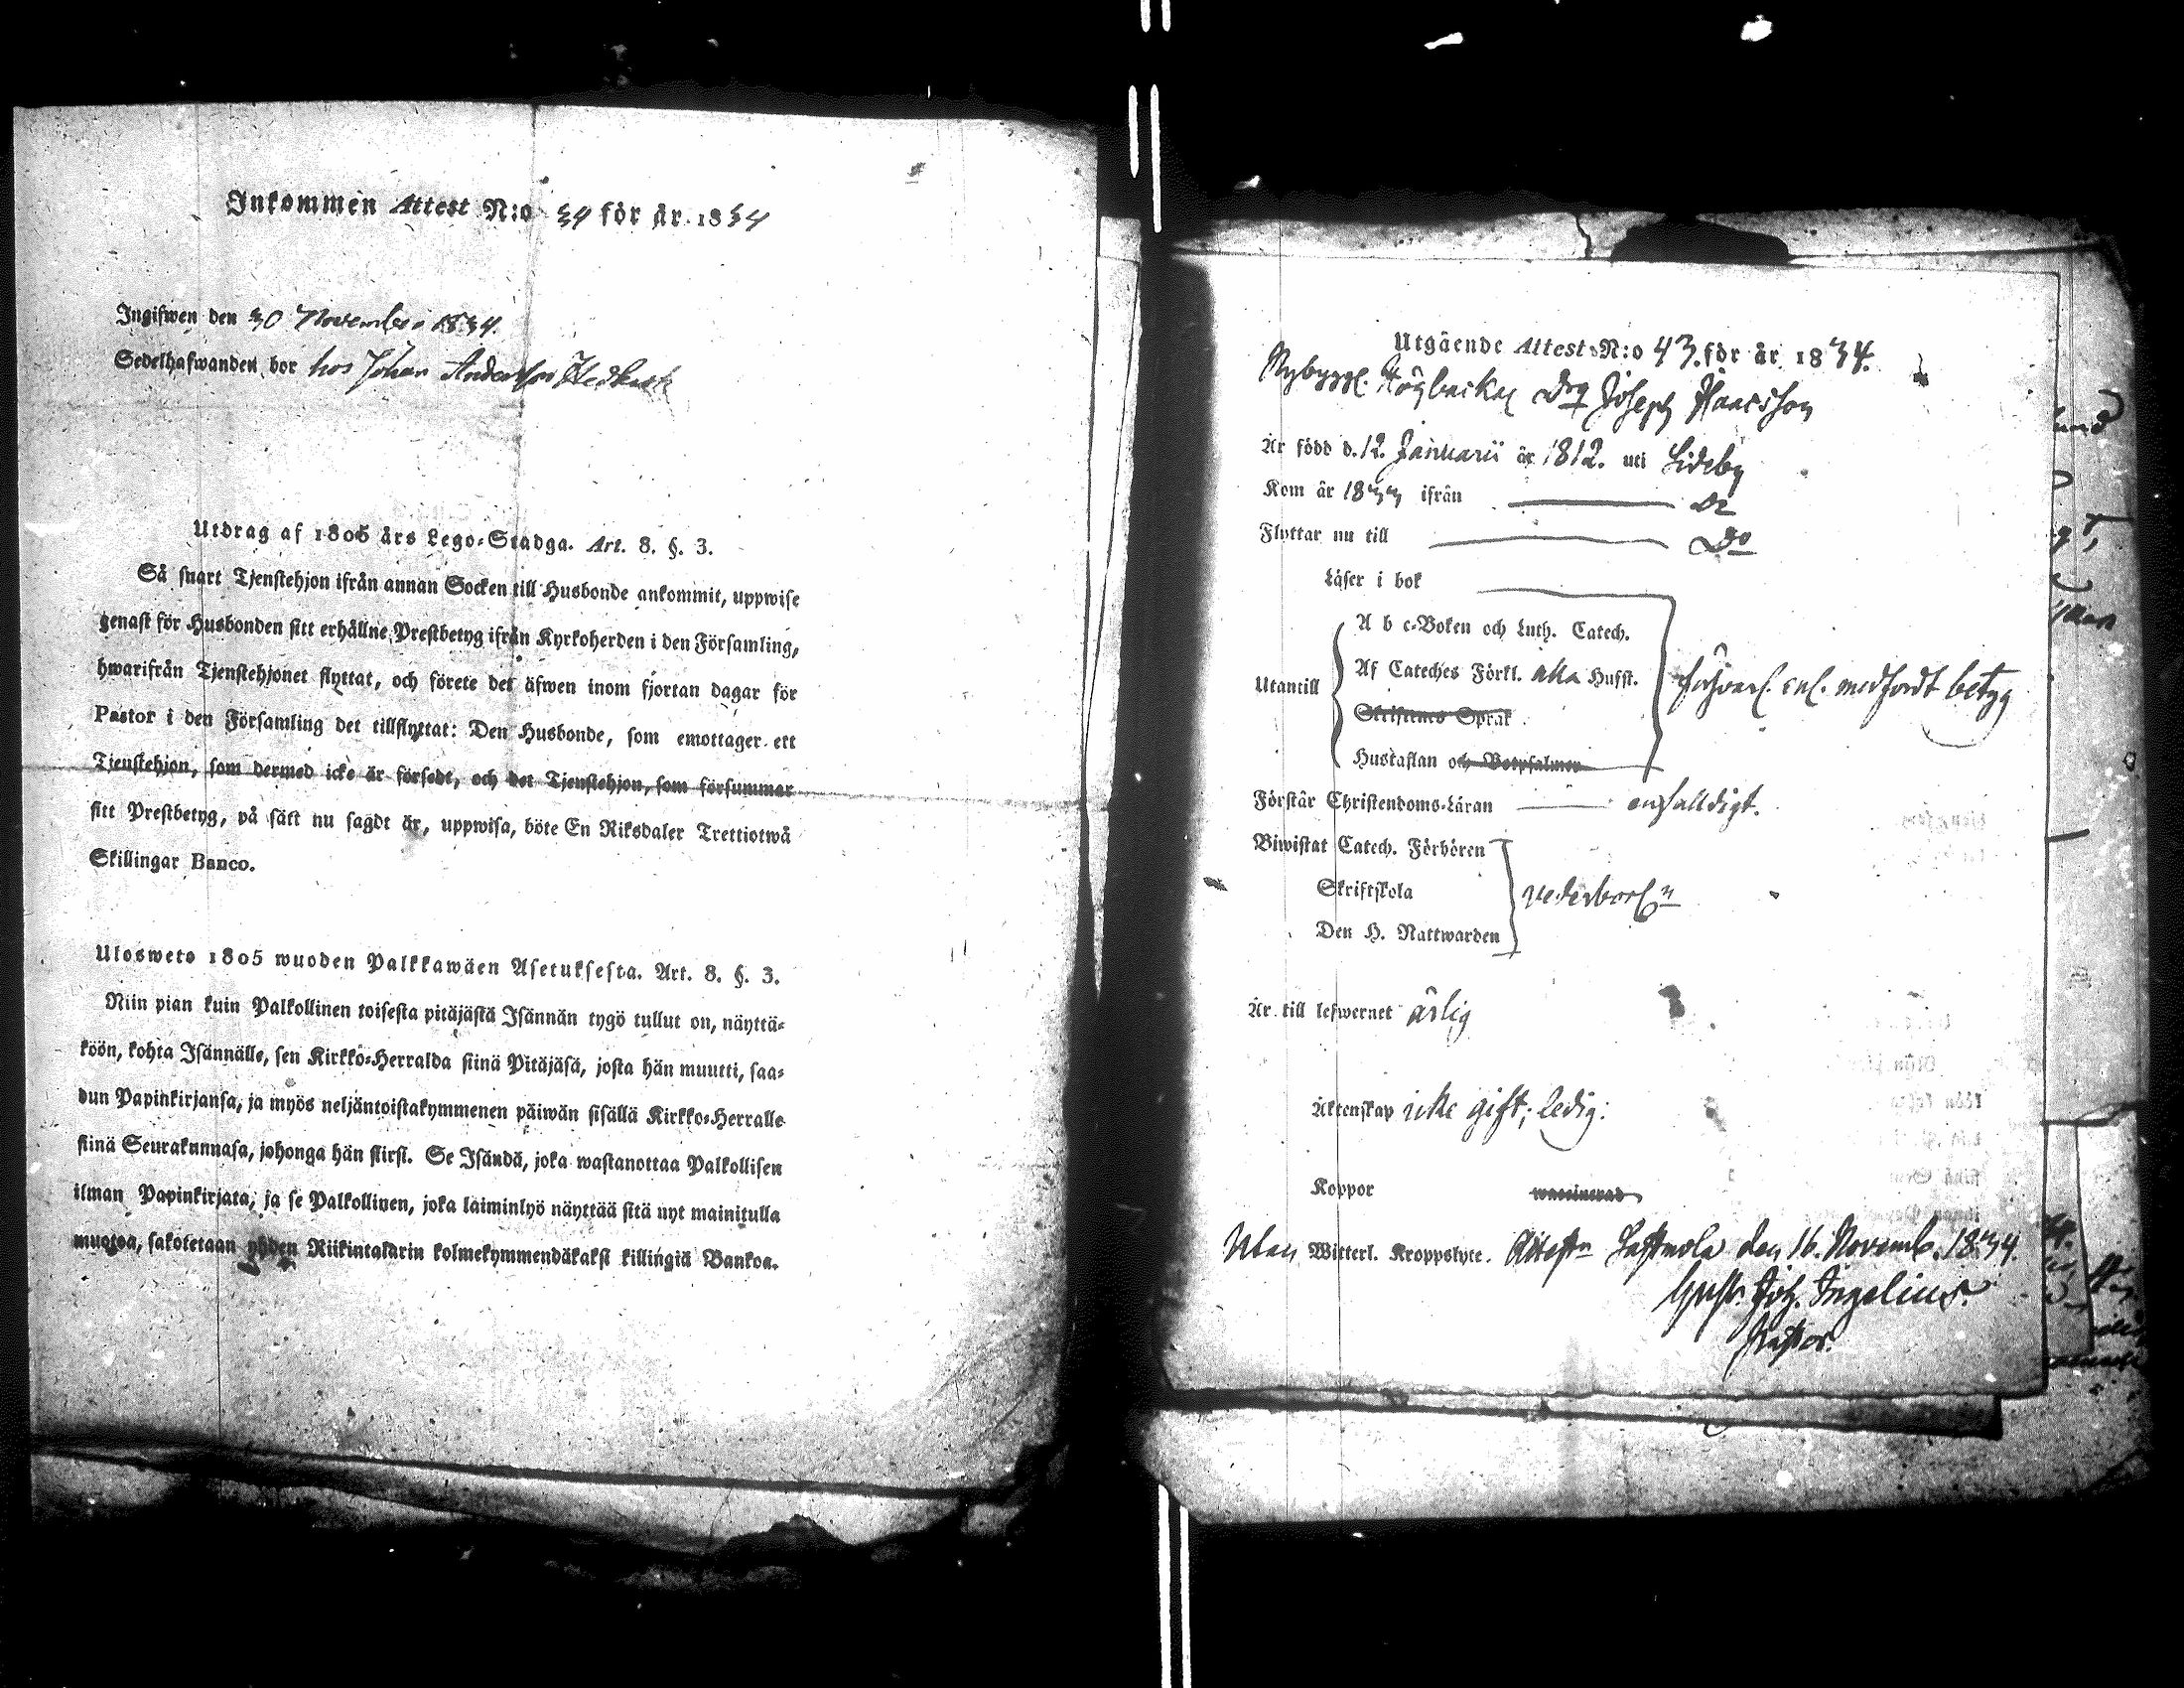 Inkommen Attest N:o 34 för år 1834
Ingifwen den 30 November 1834.
Sedelhafwanden bor hos Johan Anderson
Utdrag af 1805 års Lego-Stadga. Art. 8. §. 3.
Så snart Tjenstehjon ifrån annan Socken till Husbonde ankommit, uppwise
genast för Husbonden sitt erhållne Prestbetyg ifrån Kyrkoherden i den Församling,
hwarifrån Tjenstehjonet flyttat, och förete det äfwen inom fjortan dagar för
Pastor i den Församling det tillflyttat: Den Husbonde, som emottager ett
Tjenstehjon, som dermed icke är försedt, och det Tjenstehjon, som försummar
sitt Prestbetyg, på sätt nu sagdt är, uppwisa, böte En Riksdaler Trettiotwå
Skillingar Banco.
Ulosweto 1805 wuoden Palkkawäen Asetuksesta. Art. 8. §. 3.
Niin pian kuin Palkollinen toisesta pitäjästä Isännän tygö tullut on, näyttä-
köön, kohta Isännälle, sen Kirkko-Herralda siinä Pitäjäsä, josta hän muutti, saa-
dun Papinkirjansa, ja myös neljäntoistakymmenen päiwän sisällä Kirkko-Herralle
siinä Seurakunnasa, johonga hän siirsi. Se Isändä, joka wastanottaa Palkollisen
ilman Papinkirjata, ja se Palkollinen, joka laiminlyö näyttää sitä nyt mainitulla
muotoa, sakotetaan yhden Riikintalarin kolmekymmendäkaksi killingiä Bankoa.
Utgående Attest N:o 43. för år 1834.
Nybygg. Högbacka Drg Joseph Isaacsson
Är född d. 12. Januarii år 1812. uti Lideby
Kom år 1833 ifrån Do
Flyttar nu till Do
Läser i bok
A b c-Boken och Luth. Catech.
Utantill Af Cateches Förkl. alla Husst. enl. medfördt betyg
Skriftenes Språk
Hustaflan och Botpsalmer
Förstår Christendoms-Läran enfalldigt.
Biwistat Catech. Förhören
Skriftskola vederbörl:n
Den H. Nattwarden
Är till lefwernet ärlig
Äktenskap icke gift; ledig:
Koppor waccinerad
Utan Witterl. Kroppslyte. den 16. Novemb. 1834.
Gust. Joh. Ingelius.
Pastor.